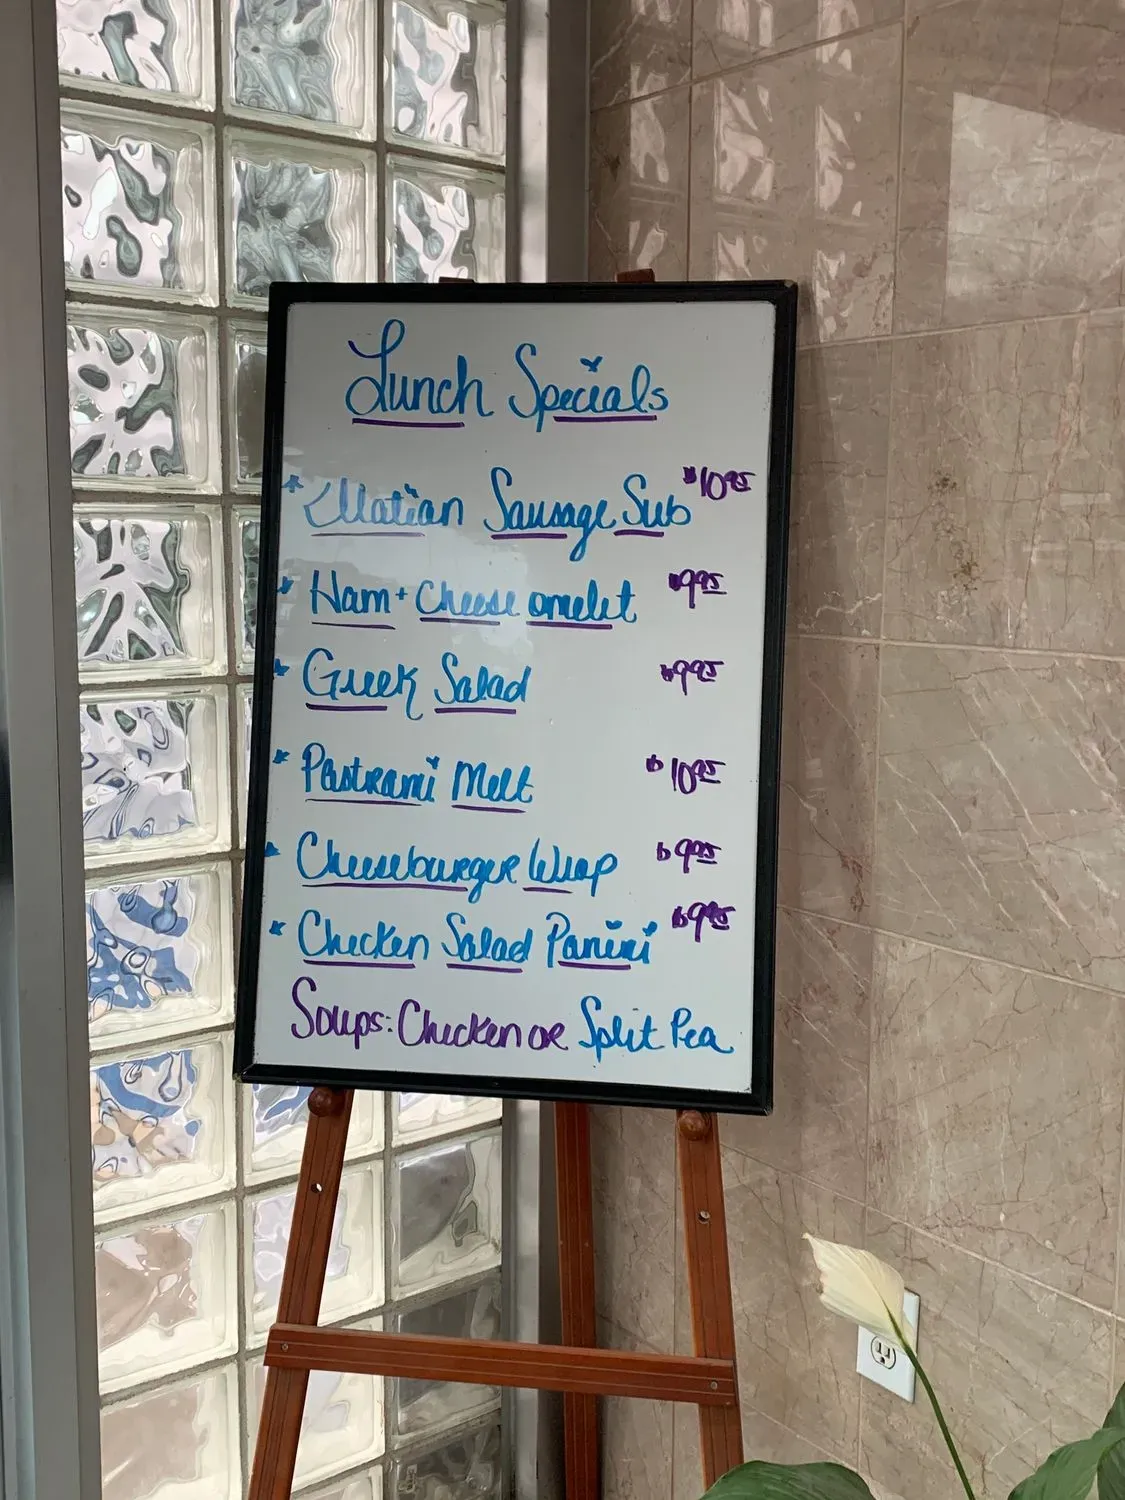 Lunch Specials
* Italian Sausage Sub $10.95
* Ham + Cheese omelet $9.95
* Greek Salad $9.95
* Pastrami Melt $10.95
* Cheeseburger Wrap $9.95
* Chicken Salad Panini $9.95
Soups: Chicken or Split Pea